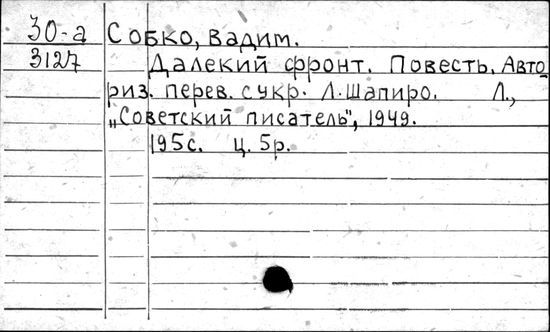 30-а Собко, Вадим.
3127 Далекий фронт. Повесть. Авто-
риз. перев. с укр. Л. Шапиро. Л.,
„Советский писатель", 1949.
195 с. ц. 5 р.